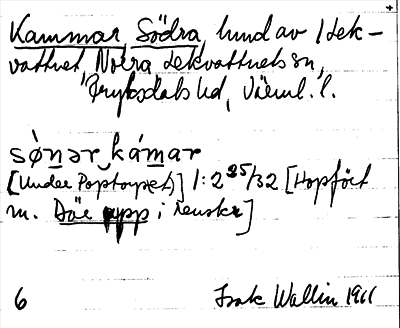 Kammar Södra, hmd av 1 Lek-
vattnet, Norra Lekvattnets sn,
Fryksdals hd, Värml. l.
sø̀nər kámar
[Under Poptorpet] 1:2 25/32 [Hopfört
m. Där upp i renskr]
6 Isak Wallin 1911